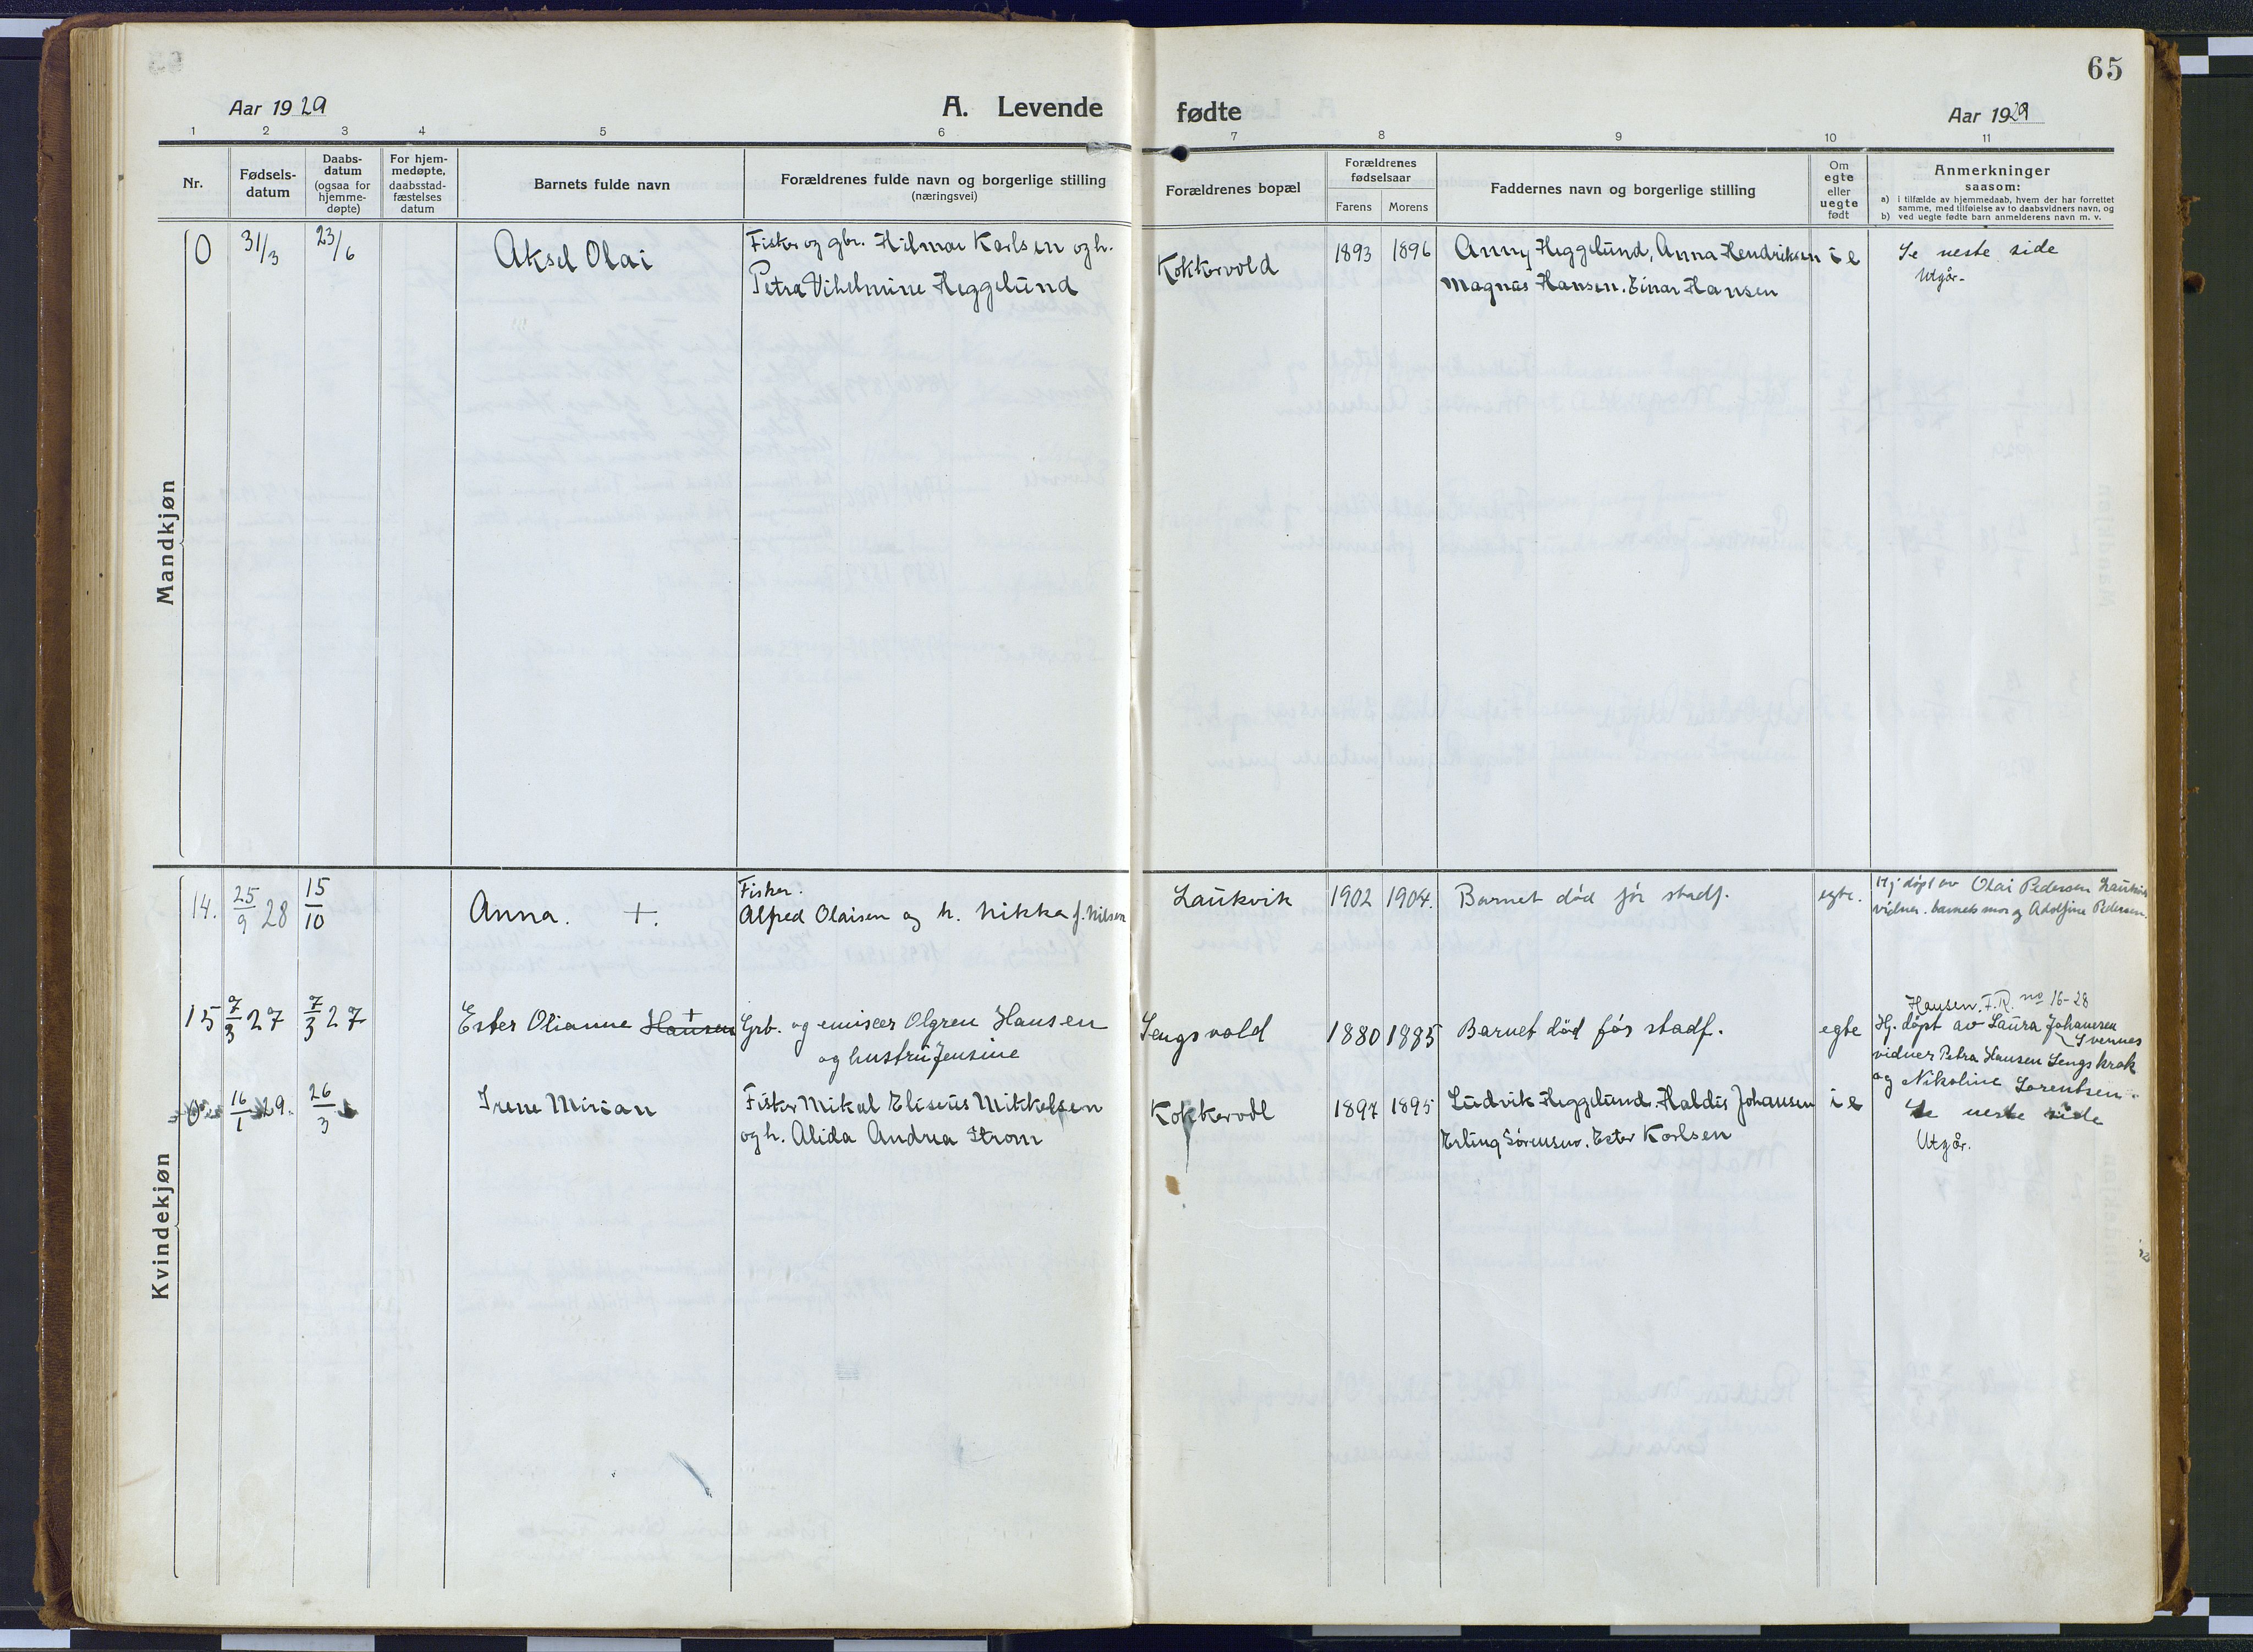 65
Aar 1929
A. Levende
fødte
Aar 1929
1 2 3 4 5 6 7 8 9 10 11
Nr.
Fødsels-
datum
Daabs-
datum
(ogsaa for
hjemme-
døpte)
For hjem-
medøpte,
daabsstad-
fæstelses
datum
Barnets fulde navn
Forældrenes fulde navn og borgerlige stilling
(næringsvei)
Forældrenes bopæl
Forældrenes
fødselsaar
Farens Morens
Faddernes navn og borgerlige stilling
Om
egte
eller
uegte
født
Anmerkninger
saasom:
a) i tilfælde av hjemmedaab, hvem der har forrettet
samme, med tilføielse av to daabsvidners navn, og
b) ved uegte fødte barn anmelderens navn m. v.
Mandkjøn
0 31/3 23/6 Aksel Olai
Fisker og gbr. Hilmar Karlsen og h.
Petra Vihelmine Heggelund
Kokkervold 1893 1896
Anny Heggelund, Anna Hendriksen
Magnus Hansen. Einar Hansen
i e
Se neste side
Utgår.
Kvindekjøn
14. 25/9 28 15/10 Anna. +.
Fisker.
Alfred Olaisen og h. Nikka f. Nilsen
Laukvik 1902 1904. Barnet död för stadf. egte.
Hj döpt av Olai Pedersen Laukvik
vidner. barnets mor og Adolfine Pedersen.
15 7/3 27 7/3 27 Ester Olianne Hansen +
Grb. og emisær Olgren Hansen
og hustru Jensine
Lengsvold 1880 1885 Barnet död för stadf. egte
Hansen. F.R. no 16-28
Hj. döpt av Laura Johansen
Svennes
vidner Petra Hansen Lengskrok
og Nikoline Lorentsen.
0 16/1 29. 26/3 Irene Mirian
Fisker Mikal Eliseus Mikkelsen
og h. Alida Andrea Strom
Kokkervold 1897 1895
Ludvik Heggelund. Haldis Johansen
Erling Sörensen. Ester Karlsen
i e
Se neste side
Utgår.